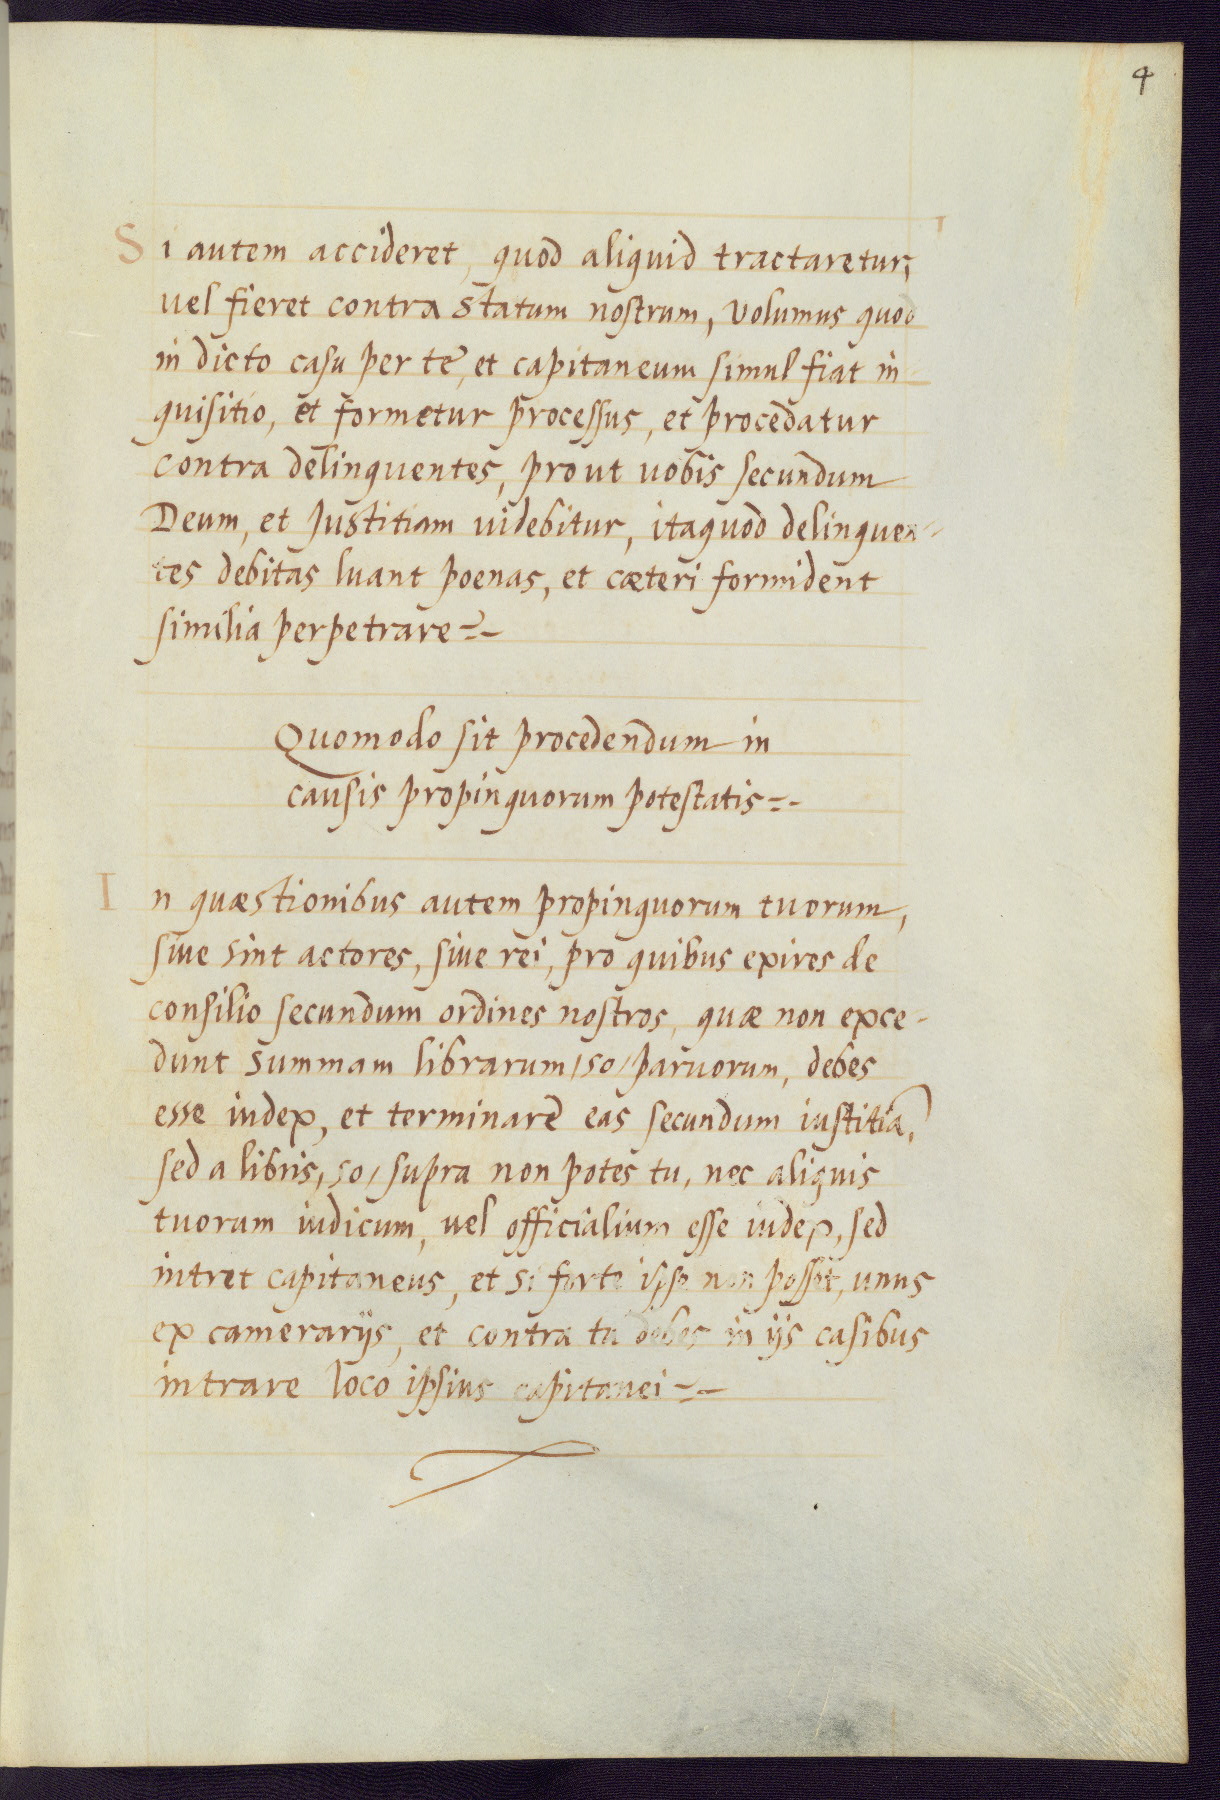 4
Si autem accideret, quod aliquid tractaretur,
vel fieret contra statum nostrum, volumus quod
in dicto casu per te, et capitaneum simul fiat in-
quisitio, et formetur processus, et procedatur
contra delinquentes, prout uobis secundum
Deum, et Justitiam uidebitur, itaquod delinquen-
tes debitas luant poenas, et cæteri formident
similia perpetrare
Quomodo sit procedendum in
causis propinquorum potestatis
In quæstionibus autem propinquorum tuorum,
siue sint actores, siue rei, pro quibus exires de
consilio secundum ordines nostros, quæ non exce-
dunt summam librarum /50/ paruorum, debes
esse iudex, et terminare eas secundum iustitiã,
sed a libris /50/ supra non potes tu, nec aliquis
tuorum iudicum, uel officialium esse iudex, sed
intret capitaneus, et si forte ipse non posset, unus
ex camerarijs, et contra tu debes in ijs casibus
intrare loco ipsius capitanei